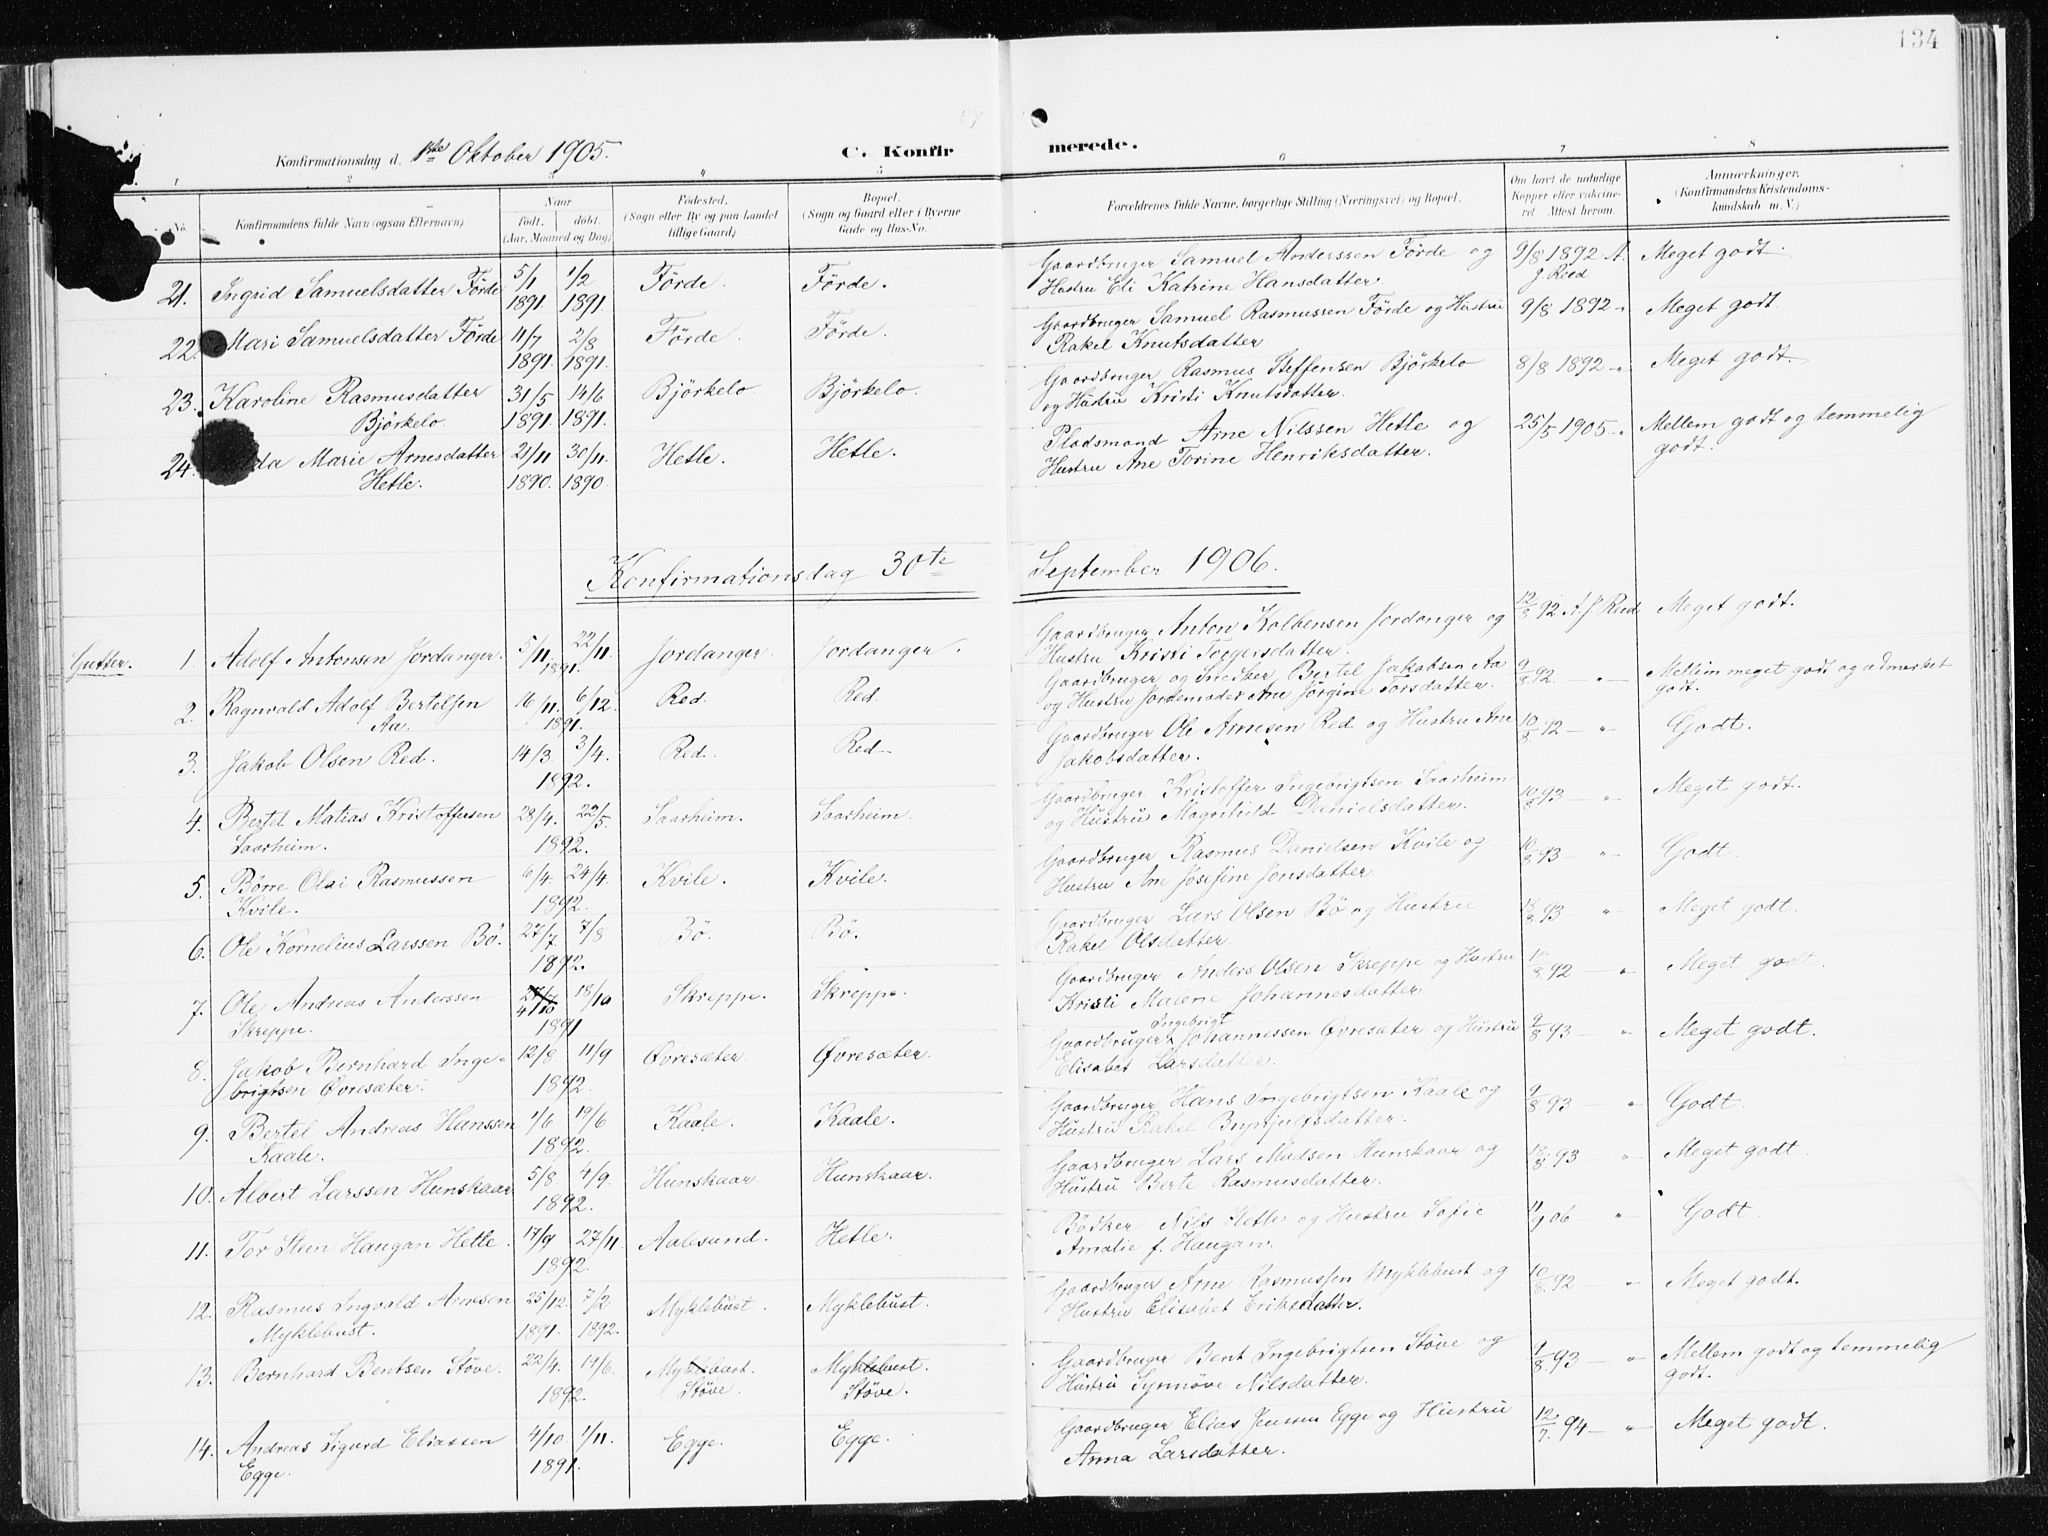 134
Konfirmationsdag d. 1ste Oktober 1905. C. Konfirmerede.
1 2 3 4 5 6 7 8
No. Konfirmandens fulde Navn (ogsaa Efternavn) Naar født, døbt. (Aar, Maaned og Dag) Fødested. (Sogn eller By og paa Landet tillige Gaard) Bopæl. (Sogn og Gaard eller i Byerne Gade og Hus-No. Forældrenes fulde Navne, borgerlige Stilling (Næringsvei) og Bopæl. Om havt de naturlige Kopper eller vakcineret. Attest herom. Anmerkninger. (Konfirmandens Kristendomskundskab m. V.)
21. Ingrid Samuelsdatter Förde 5/1 1891 1/2 1891. Förde. Förde. Gaardbruger Samuel Anderssen Förde og Hustru Eli Katrine Hansdatter. 9/8 1892 A. J. Ried Meget godt.
22. Mari Samuelsdatter Förde 11/7 1891. 2/8 1891. Förde. Förde. Gaardbruger Samuel Rasmussen Förde og Hustru Rakel Knutsdatter 9/8 1892 " Meget godt
23. Karoline Rasmusdatter Björkelo. 31/5 1891. 14/6 1891. Björkelo Björkelo. Gaardbruger Rasmus Steffensen Björkelo og Hustru Kristi Knutsdatter. 8/8 1892 " Meget godt.
24. Marie Arnesdatter Hetle. 21/11 1890. 30/11 1890. Hetle. Hetle. Pladsmand Arne Nilssen Hetle og Hustru Ane Torine Henriksdatter. 25/5 1905 " Mellem godt og temmelig godt.
Konfirmationsdag 30te September 1906.
Gutter. 1. Adolf Antonsen Jordanger. 5/11 22/11 1891. Jordanger. Jordanger. Gaardbruger Anton Kolbensen Jordanger og Hustru Kristi Torgersdatter. 12/8 92 A. J. Ried Meget godt.
2. Ragnvald Adolf Bertelsen Aa. 16/11. 6/12. 1891. Red. Red. Gaardbruger og Snedker Bertel Jakobsen Aa og Hustru Jordemoder Ane Jörgine Torsdatter. 9/8 92 — " Mellem meget godt og udmerket godt.
3. Jakob Olsen Red. 14/3 3/4. 1892. Red. Red. Gaardbruger Ole Arnesen Red og Hustru Ane Jakobsdatter. 10/8. 92 — " Godt.
4. Bertel Matias Kristoffersen Saarheim. 28/4. 22/5. 1892. Saarheim. Saarheim. Gaardbruger Kristoffer Ingebrigtsen Saarheim og Hustru Magnhild Danielsdatter. 10/8 93 — " Meget godt.
5. Børre Olai Rasmussen Kvile. 6/4. 24/4. 1892. Kvile. Kvile. Gaardbruger Rasmus Danielsen Kvile og Hustru Ane Josefine Jonsdatter. 10/8 93 — " Godt.
6. Ole Kornelius Larssen Bö. 27/7 7/8 1892. Bö. Bö. Gaardbruger Lars Olsen Bö og Hustru Rakel Olsdatter. 93 — " Meget godt.
7. Ole Andreas Anderssen Skreppe. 27/7 4/10 18/10 1891 Skreppe. Skreppe. Gaardbruger Anders Olsen Skreppe og Hustru Kristi Malene Johannesdatter. 92 — " Meget godt.
8. Jakob Bernhard Ingebrigtsen Øvresæter. 12/8 11/9 1892. Øvresæter. Øvresæter. Gaardbruger Ingebrigt Johannessen Øvresæter og Hustru Elisabet Larsdatter. 9/8 93 — " Meget godt.
9. Bertel Andreas Hanssen Kaale. 1/6 19/6 1892. Kaale. Kaale. Gaardbruger Hans Ingebrigtsen Kaale og Hustru Rakel Brynjulfsdatter. 9/8 93 " Godt.
10. Albert Larssen Hunskaar 5/8 4/9 1892. Hunskaar Hunskaar. Gaardbruger Lars Madsen Hunskaar og Hustru Berte Rasmusdatter. 93 " Meget godt.
11. Tor Steen Haugan Hetle. 17/9 27/11 1892. Aalesund. Hetle. Bödker Nils Hetle og Hustru Sofie Amalie f. Haugan. 11/9 06 — " Godt
12. Rasmus Ingvald Arnesen Myklebust. 25/12. 1891. 7/2 1892. Myklebust. Myklebust. Gaardbruger Arne Rasmussen Myklebust og Hustru Elisabet Eriksdatter. 10/8. 92 — " Meget godt.
13. Bernhard Bentsen Stöve. 22/4. 19/6. 1892. Myklebust. Stöve. Myklebust. Stöve. Gaardbruger Bent Ingebrigtsen Stöve og Hustru Synnöve Nilsdatter. 1/8 93 — " Mellem godt og temmelig godt.
14. Andreas Sigurd Eliassen Egge. 4/10 1/11. 1891. Egge. Egge. Gaardbruger Elias Jenssen Egge og Hustru Anna Larsdatter. 12/7. 94 — " Meget godt.